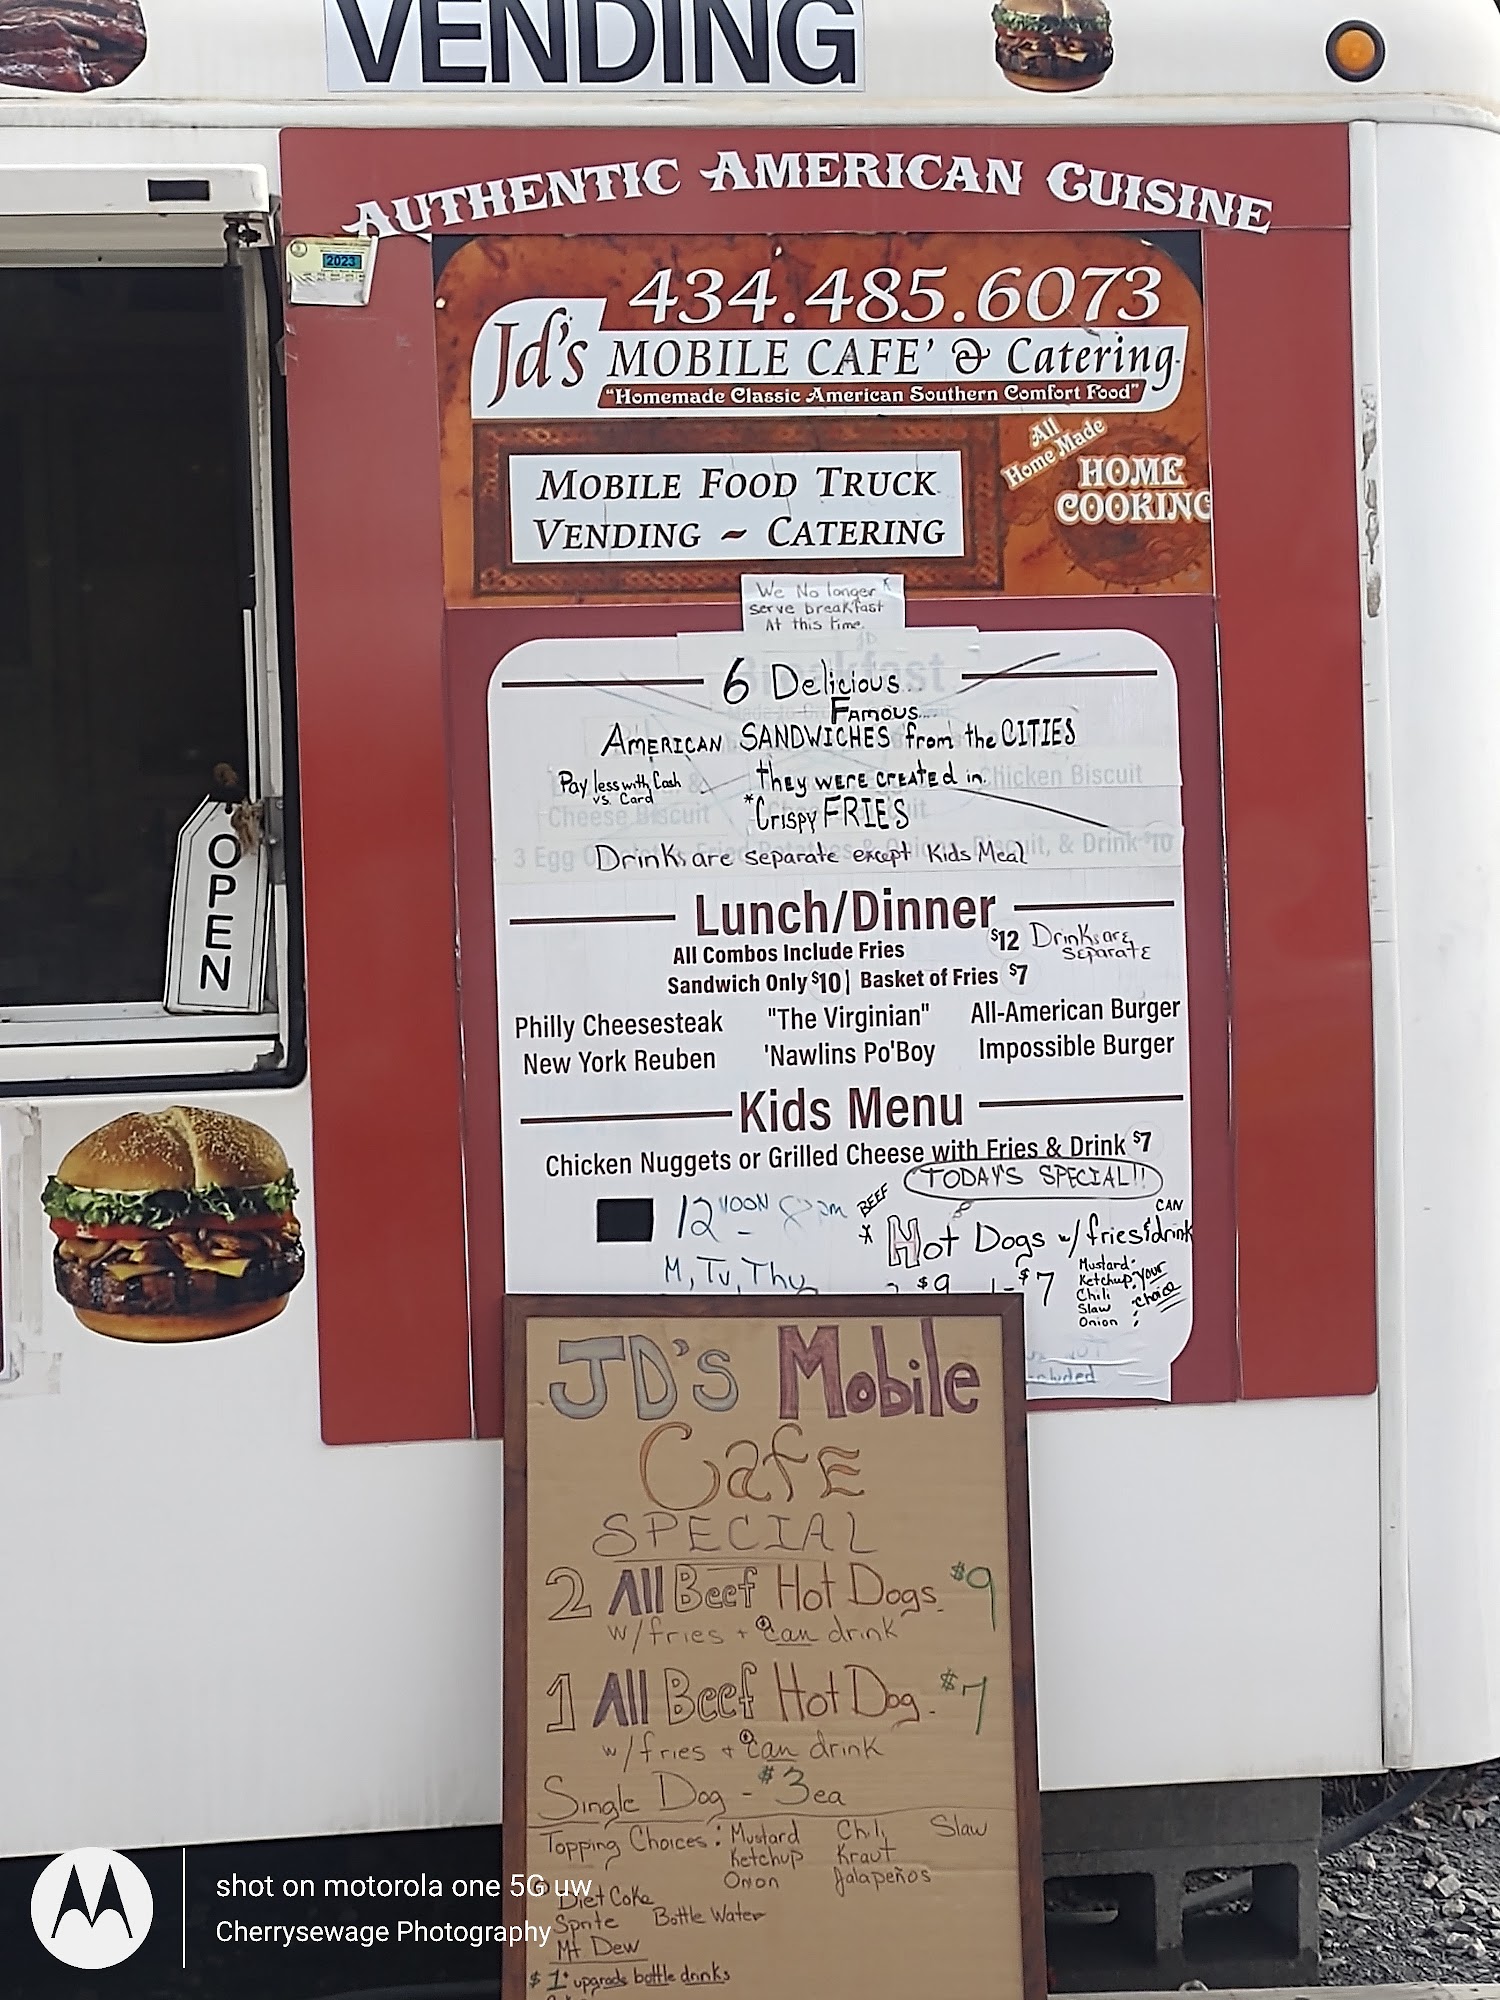 VENDING
AUTHENTIC AMERICAN CUISINE
2023
434.485.6073
Jd's MOBILE CAFE' & Catering
"Homemade Classic American Southern Comfort Food"
All Home Made
HOME
COOKING
MOBILE FOOD TRUCK
VENDING ~ CATERING
We No longer
serve breakfast
At this time.
6 Delicious...
FAMOUS....
AMERICAN SANDWICHES from the CITIES
they were created in.
Pay less with Cash
vs. Card
*Crispy FRIES
Drinks are separate except Kids Meal
Chicken Biscuit
Cheese Biscuit
3 Egg
& Drink $10
OPEN
Lunch/Dinner
All Combos Include Fries $12 Drinks are
separate
Sandwich Only $10 | Basket of Fries $7
Philly Cheesesteak "The Virginian" All-American Burger
New York Reuben 'Nawlins Po'Boy Impossible Burger
Kids Menu
Chicken Nuggets or Grilled Cheese with Fries & Drink $7
TODAY'S SPECIAL!!
12 NOON - 8pm
M, Tu, Thu
* BEEF Hot Dogs w/ fries & CAN drink
$9 1-$7
Mustard
Ketchup
Chili
Slaw
Onion
your
choice
JD'S Mobile
Cafe
SPECIAL
2 All Beef Hot Dogs $9
w/fries + can drink
1 All Beef Hot Dog. $7
w/fries + can drink
Single Dog - $3ea
Topping Choices: Mustard Chili Slaw
Ketchup Kraut
Onion Jalapeños
Diet Coke
Sprite Bottle Water
Mt Dew
$1 upgrade bottle drinks
shot on motorola one 5G uw
Cherrysewage Photography